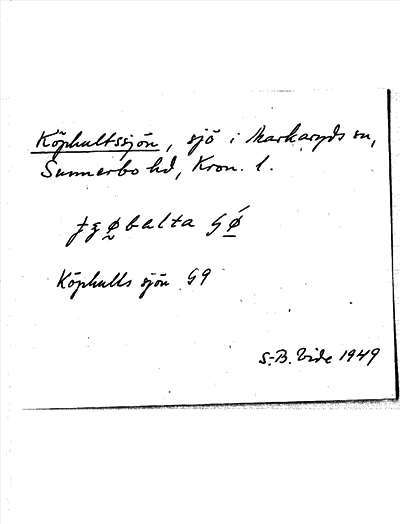 Köphultssjön, sjö i Markaryds sn,
Sunnerbo hd, Kron. l.
Köphults sjön G9
S.-B. Vide 1949